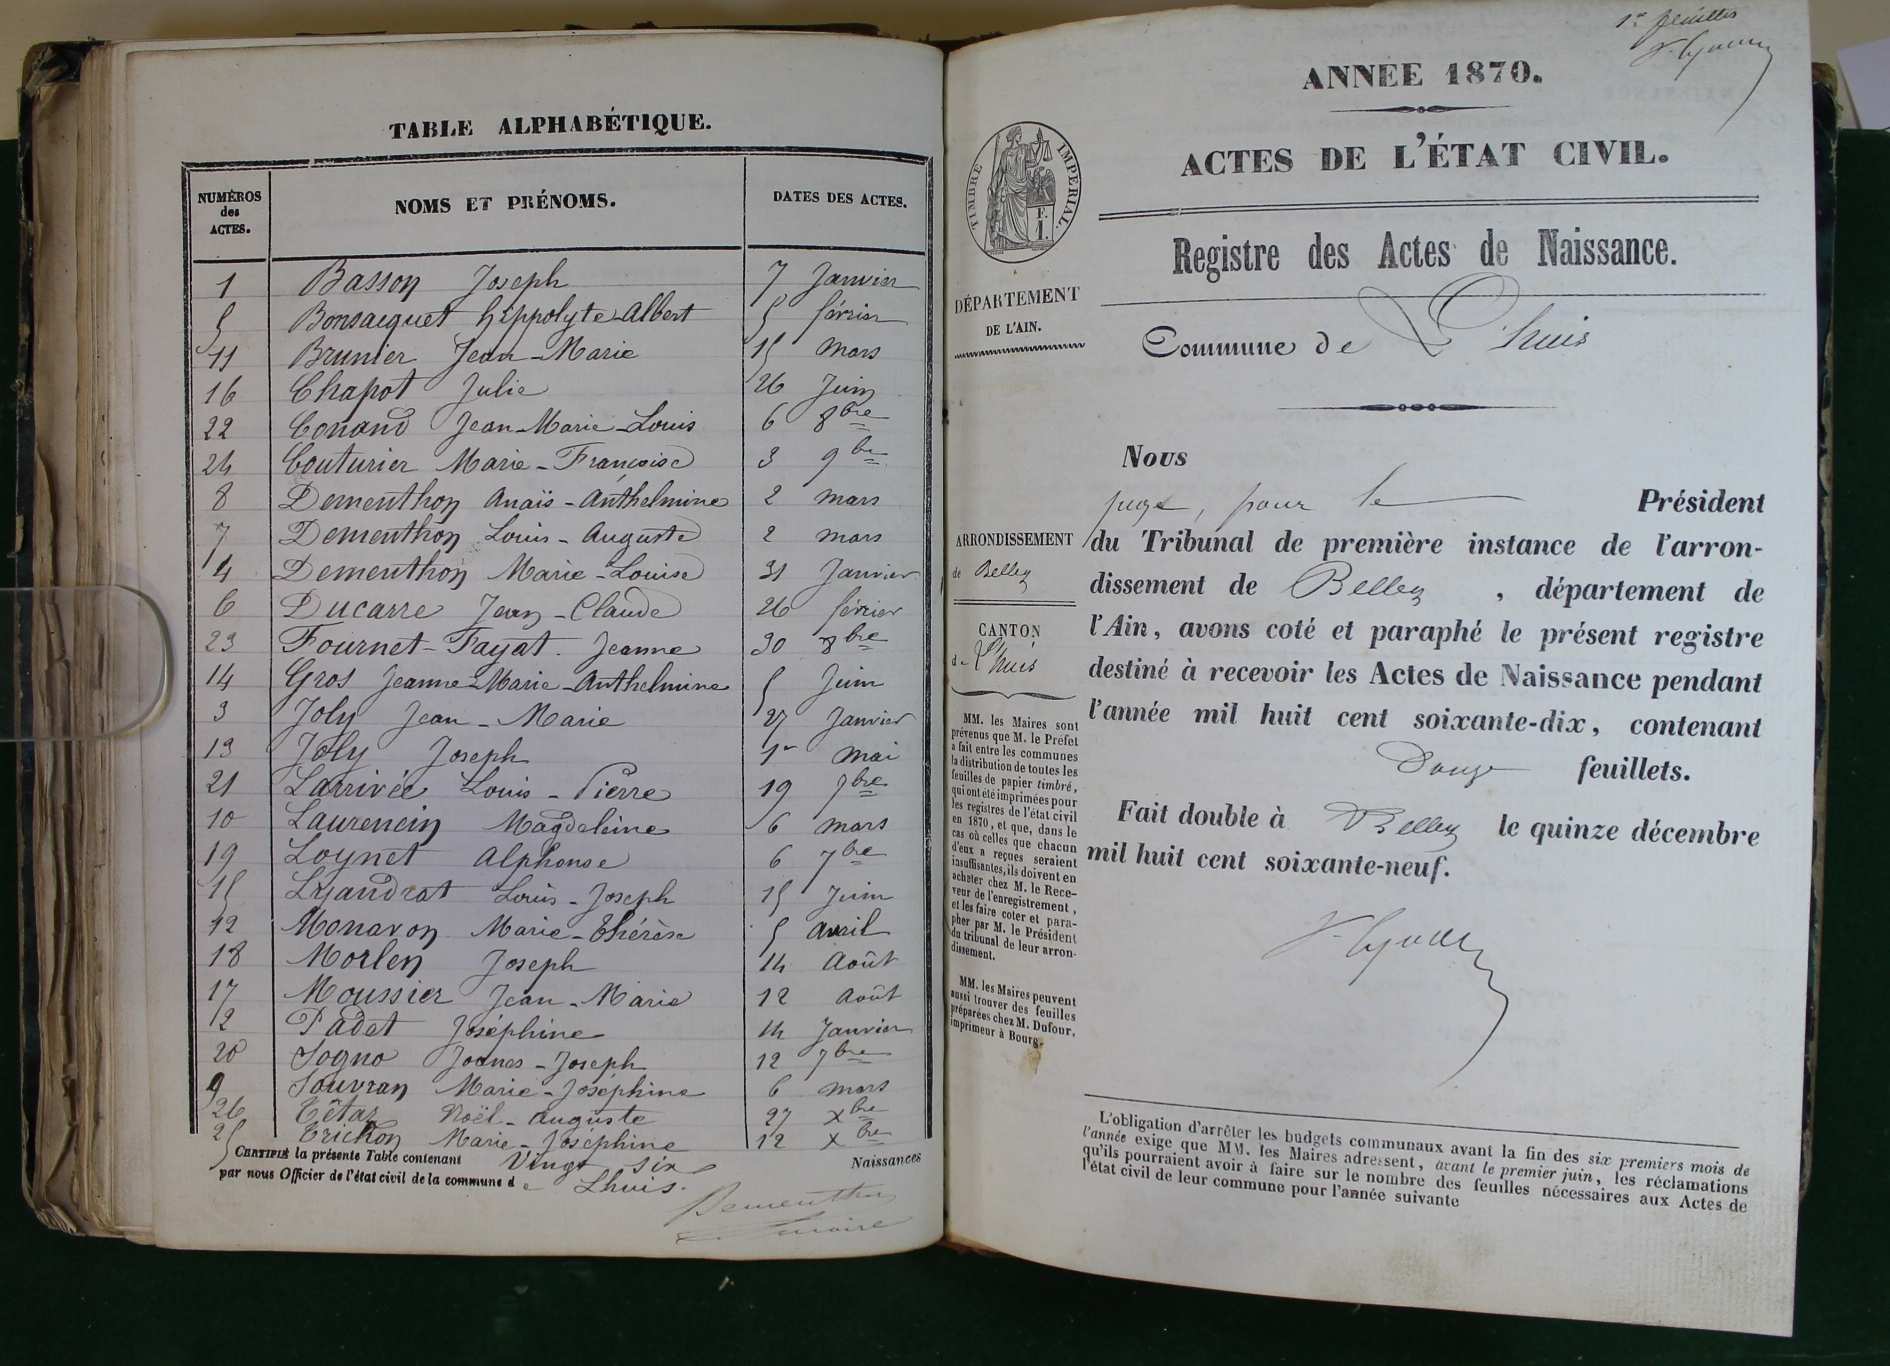 TABLE ALPHABÉTIQUE.
NUMÉROS des ACTES. NOMS ET PRÉNOMS. DATES DES ACTES.
1 Basson Joseph 7 Janvier
5 Bonsacquet Hippolyte-Albert 5 février
11 Brunier Jean-Marie 15 mars
16 Chapot Julie 26 Juin
22 Conand Jean-Marie-Louis 6 8bre
24 Couturier Marie-Françoise 3 9bre
8 Dementhon Anaïs-Anthelmine 2 mars
7 Dementhon Louis-Auguste 2 mars
4 Dementhon Marie-Louise 31 Janvier
6 Ducarre Jean-Claude 26 février
23 Fournet-Fayat Jeanne 30 8bre
14 Gros Jeanne-Marie-Anthelmine 5 Juin
3 Joly Jean-Marie 27 Janvier
13 Joly Joseph 1er mai
21 Larrivée Louis-Pierre 19 7bre
10 Laurencin Magdeleine 6 mars
19 Loynet Alphonse 6 7bre
15 Lyandrat Louis-Joseph 15 Juin
12 Monavon Marie-Thérèse 5 avril
18 Morlen Joseph 14 Août
17 Moussier Jean-Marie 12 Août
2 Padet Joséphine 14 Janvier
20 Sogno Joanes-Joseph 12 7bre
9 Souvran Marie-Joséphine 6 mars
26 Têtaz Noël-Auguste 27 Xbre
25 Trichon Marie-Joséphine 12 Xbre
CERTIFIÉ la présente Table contenant Vingt six Naissances
par nous Officier de l'état civil de la commune de Lhuis.
Dementhon
maire
1er feuillet
ANNÉE 1870.
ACTES DE L'ÉTAT CIVIL.
TIMBRE IMPÉRIAL.
E. I.
Registre des Actes de Naissance.
DÉPARTEMENT
DE L'AIN.
Commune de L'huis
Nous
juge, pour le Président
du Tribunal de première instance de l'arron-
dissement de Belley, département de
l'Ain, avons coté et paraphé le présent registre
destiné à recevoir les Actes de Naissance pendant
l'année mil huit cent soixante-dix, contenant
Douze feuillets.
Fait double à Belley le quinze décembre
mil huit cent soixante-neuf.
ARRONDISSEMENT
de Belley
CANTON
de L'huis
MM. les Maires sont
prévenus que M. le Préfet
a fait entre les communes
la distribution de toutes les
feuilles de papier timbré,
qui ont été imprimées pour
les registres de l'état civil
en 1870, et que, dans le
cas où celles que chacun
d'eux a reçues seraient
insuffisantes, ils doivent en
acheter chez M. le Rece-
veur de l'enregistrement,
et les faire coter et para-
pher par M. le Président
du tribunal de leur arron-
dissement.
MM. les Maires peuvent
aussi trouver des feuilles
préparées chez M. Dufour,
imprimeur à Bourg.
L'obligation d'arrêter les budgets communaux avant la fin des six premiers mois de
l'année exige que MM. les Maires adressent, avant le premier juin, les réclamations
qu'ils pourraient avoir à faire sur le nombre des feuilles nécessaires aux Actes de
l'état civil de leur commune pour l'année suivante